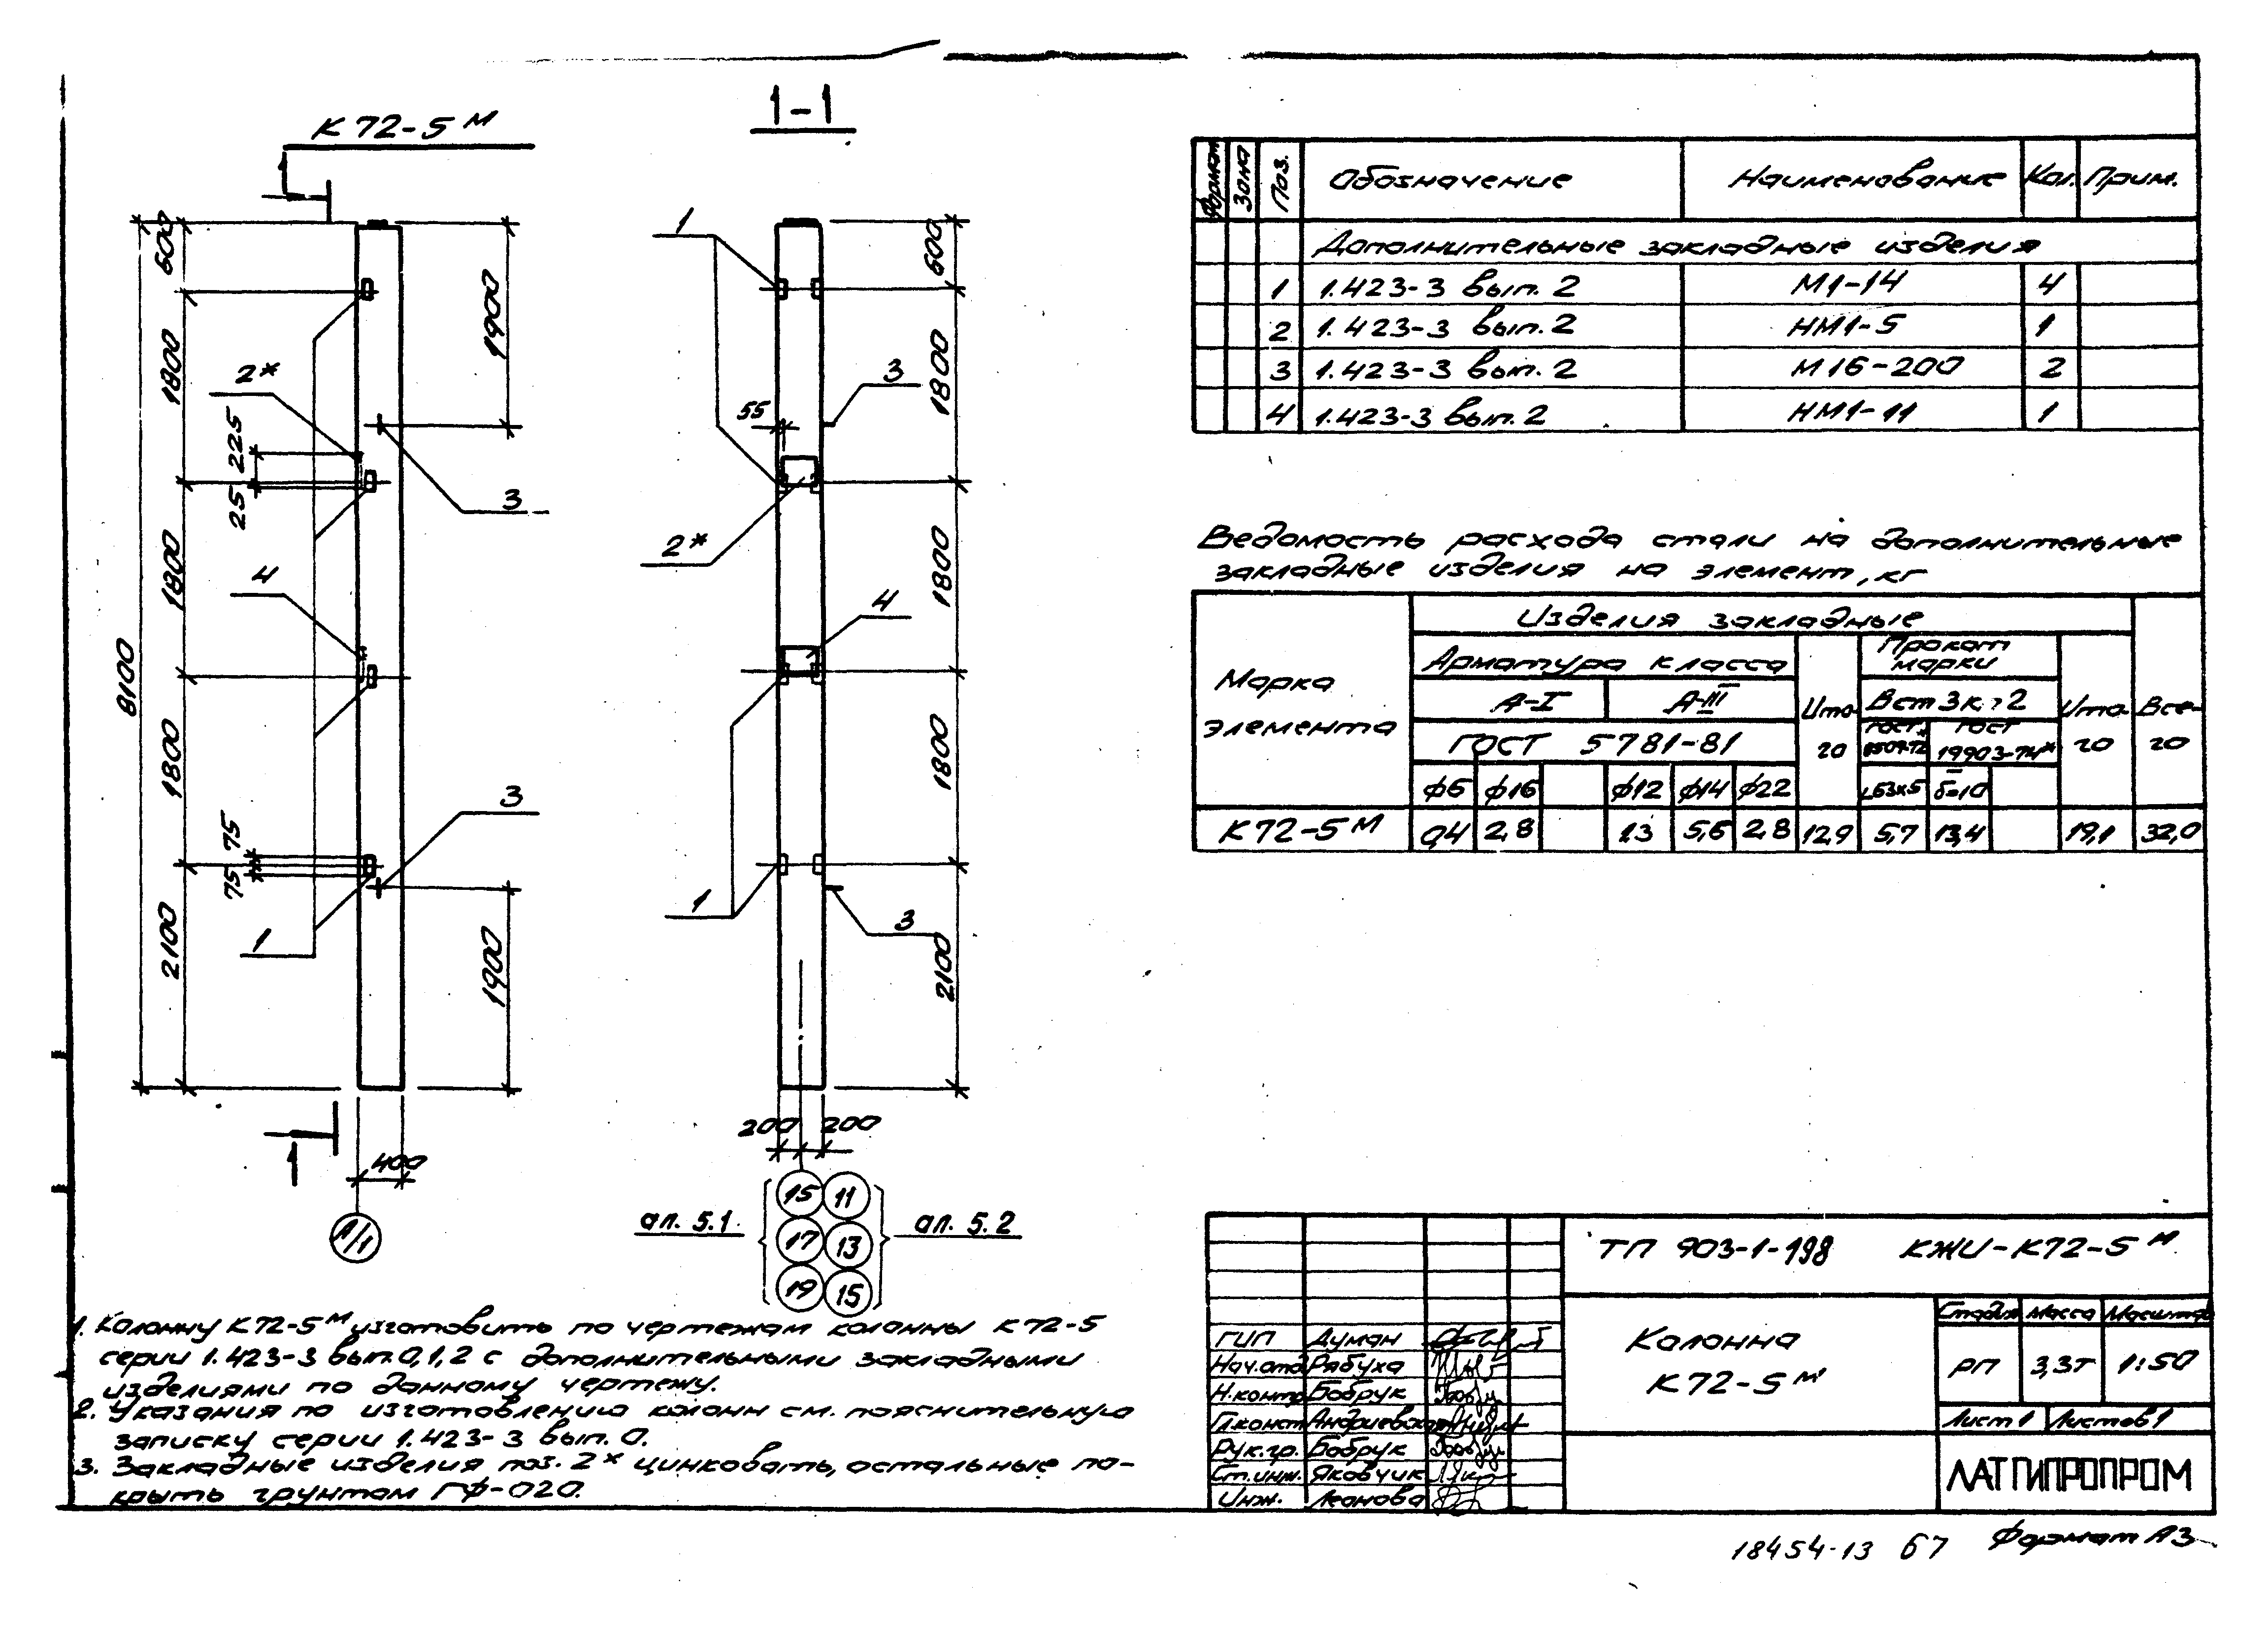 К72-5м
1-1
600
1800
1800
1800
2100
8100
1900
1900
225
25
75
75
2*
4
3
3
1
400
А/1
1
1
1
3
55
2*
4
1
3
600
1800
1800
1800
2100
200 200
ал. 5.1
15 11
17 13
19 15
ал. 5.2
Формат Зона Поз. Обозначение Наименование Кол. Прим.
Дополнительные закладные изделия
1 1.423-3 вып. 2 М1-14 4
2 1.423-3 вып. 2 НМ1-5 1
3 1.423-3 вып. 2 М16-200 2
4 1.423-3 вып. 2 НМ1-11 1
Ведомость расхода стали на дополнительные
закладные изделия на элемент, кг
Марка элемента
Изделия закладные
Арматура класса
Прокат марки
А-I А-III
Итого
Вст3кп2
Итого
Всего
ГОСТ 5781-81
ГОСТ
ГОСТ 19903-74*
ф6 ф16 ф12 ф14 ф22 L63х5 δ=10
К72-5м 0,4 2,8 1,3 5,6 2,8 12,9 5,7 13,4 19,1 32,0
1. Колонну К72-5м изготовить по чертежам колонны К72-5
серии 1.423-3 вып.0,1,2 с дополнительными закладными
изделиями по данному чертежу.
2. Указания по изготовлению колонн см. пояснительную
записку серии 1.423-3 вып. 0.
3. Закладные изделия поз. 2* цинковать, остальные по-
крыть грунтом ГФ-020.
ТП 903-1-198 КЖИ-К72-5м
ГИП Думан
Нач.отд Рябуха
Н.контр Бобрук
Гл.конст Андриевская
Рук.гр. Бобрук
Ст.инж. Яковчик
Инж. Леонова
Колонна
К72-5м
Стадия Масса Масштаб
РП 3,3т 1:50
Лист 1 Листов 1
ЛАТГИПРОПРОМ
18454-13 67 Формат А3